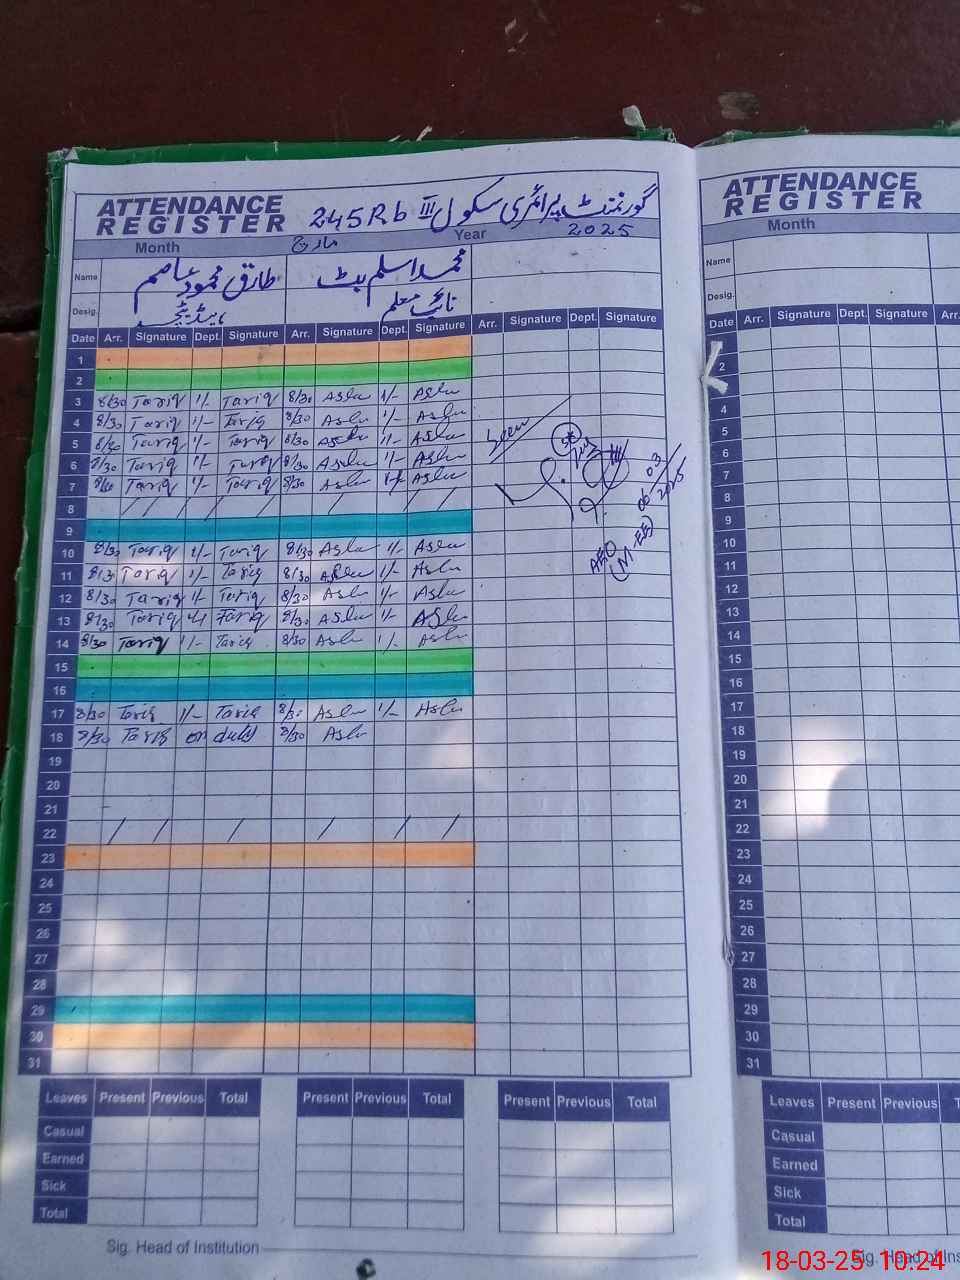 ATTENDANCE REGISTER
گورنمنٹ پرائمری سکول 245Rb III
Month مارچ Year 2025
Name طارق محمود عاصم محمد اسلم بٹ
Desig. ہیڈ ٹیچر نائب معلم
Date Arr. Signature Dept. Signature Arr. Signature Dept. Signature Arr. Signature Dept. Signature
1
2
3 8/30 Tariq 1/- Tariq 8/30 Aslm 1/- Aslm
4 8/30 Tariq 1/- Tariq 8/30 Aslm 1/- Aslm
5 8/30 Tariq 1/- Tariq 8/30 Aslm 1/- Aslm
6 8/30 Tariq 1/- Tariq 8/30 Aslm 1/- Aslm
7 8/30 Tariq 1/- Tariq 8/30 Aslm 1/- Aslm
8 / / / / / / / /
9
10 8/30 Tariq 1/- Tariq 8/30 Aslm 1/- Aslm
11 8/30 Tariq 1/- Tariq 8/30 Aslm 1/- Aslm
12 8/30 Tariq 1/- Tariq 8/30 Aslm 1/- Aslm
13 8/30 Tariq 1/- Tariq 8/30 Aslm 1/- Aslm
14 8/30 Tariq 1/- Tariq 8/30 Aslm 1/- Aslm
15
16
17 8/30 Tariq 1/- Tariq 8/30 Aslm 1/- Aslm
18 8/30 Tariq on duty 8/30 Aslm
19
20
21
22 / / / / / /
23
24
25
26
27
28
29
30
31
Seen
06 03 2025
AEO
(M-EE)
Leaves Present Previous Total Present Previous Total Present Previous Total
Casual
Earned
Sick
Total
Sig. Head of Institution
ATTENDANCE REGISTER
Month
Name
Desig.
Date Arr. Signature Dept. Signature Arr.
2
4
5
6
7
8
9
10
11
12
13
14
15
16
17
18
19
20
21
22
23
24
25
26
27
28
29
30
31
Leaves Present Previous
Casual
Earned
Sick
Total
Sig. Head of Ins
18-03-25 10:24